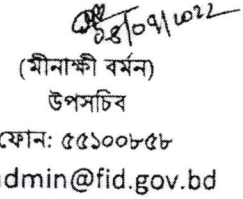 ০৪/০৭/২০২২
(মীনাক্ষী বর্মন)
উপসচিব
ফোন: ৫৫১০০৮৫৮
admin@fid.gov.bd